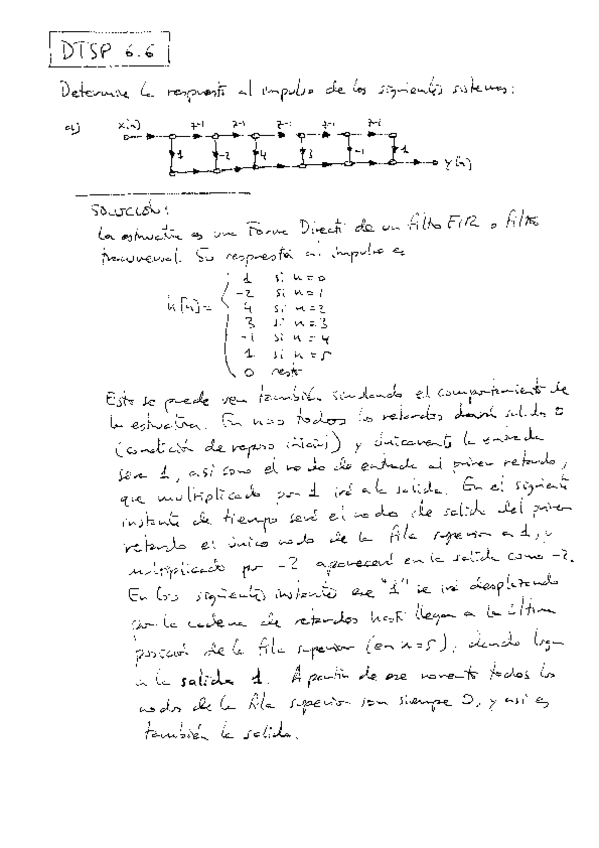 DTSP 6.6
Determine la respuesta al impulso de los siguientes sistemas:
a) x(n) z-1 z-1 z-1 z-1 z-1
1 -2 4 3 -1 1 y(n)
SOLUCIÓN:
La estructura es una Forma Directa de un filtro FIR o filtro
transversal. Su respuesta al impulso es
1 si n=0
-2 si n=1
h[n]= 4 si n=2
3 si n=3
-1 si n=4
1 si n=5
0 resto
Esto se puede ver también simulando el comportamiento de
la estructura. En n=0 todos los retardos darán salida 0
(condición de reposo inicial) y únicamente la entrada
será 1, así como el nodo de entrada al primer retardo,
que multiplicado por 1 irá a la salida. En el siguiente
instante de tiempo será el nodo de salida del primer
retardo el único nodo de la fila superior a 1, y
multiplicado por -2 aparecerá en la salida como -2.
En los siguientes instantes ese "1" se irá desplazando
por la cadena de retardos hasta llegar a la última
posición de la fila superior (en n=5), dando lugar
a la salida 1. A partir de ese momento todos los
nodos de la fila superior son siempre 0, y así es
también la salida.